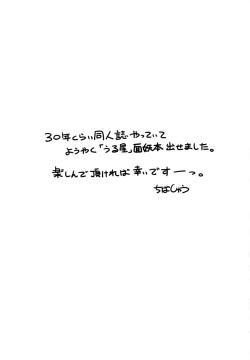 30年くらい同人誌やっていて
ようやく「うる星」面妖本出せました。
楽しんで頂ければ幸いですーっ。
ちばしゅう